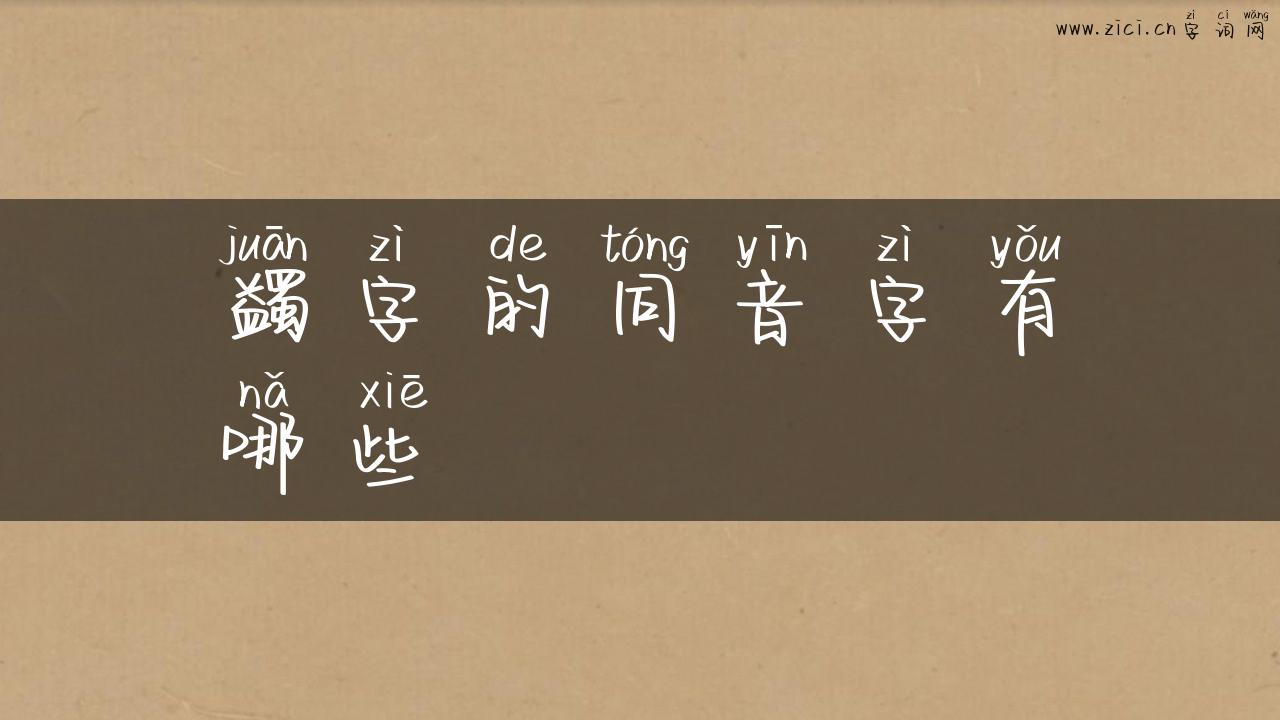 zì cí wǎng
www.zici.cn 字 词 网
juān zì de tóng yīn zì yǒu
蠲 字 的 同 音 字 有
nǎ xiē
哪 些